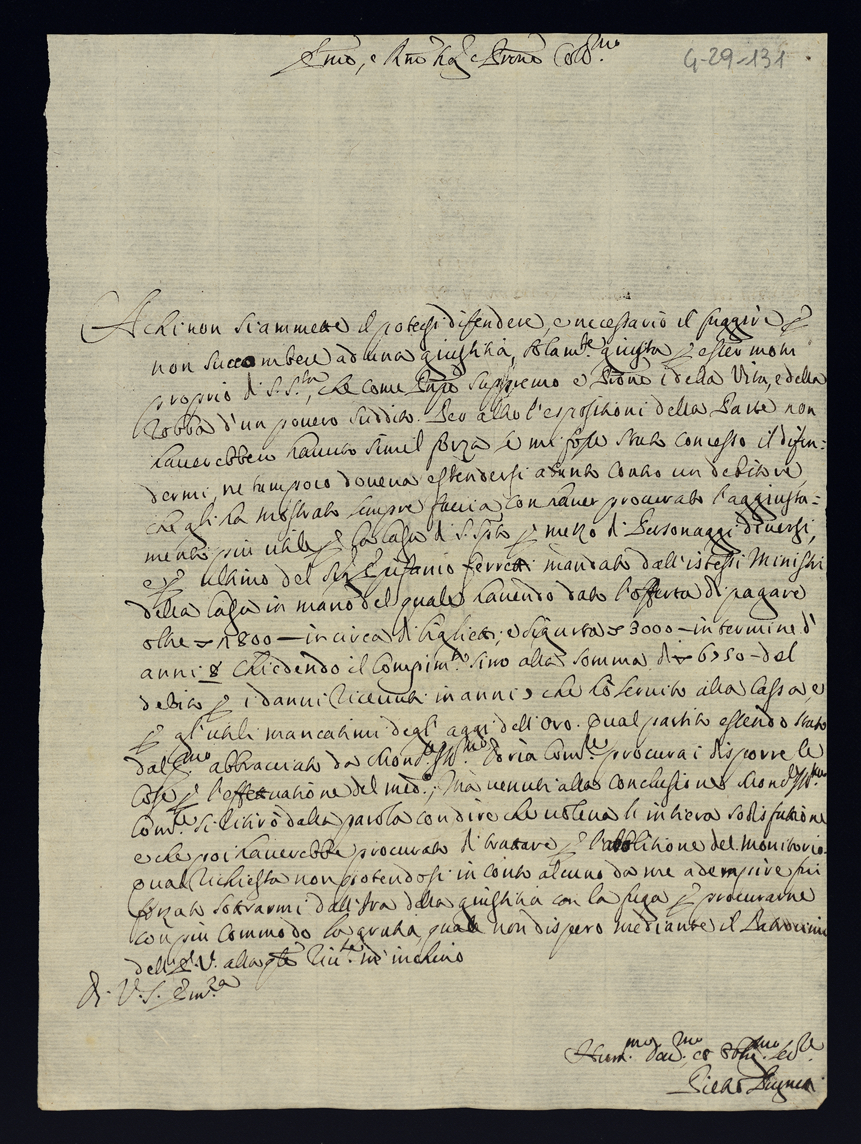 Emo, e Rmo Sig. e Prone Colmo
G-29-131
A chi non si ammette il potersi difendere, e necessario il fuggire p
non succombere ad una giustitia, solamte giusta p esser motu
proprio di S. Sta, che come Supremo e Prone i della Vita, e della
robba d'un povero suddito. Per altro l'espositioni della Parte non
haverebbero havuto simil forza se mi fosse stato concesso il difen=
dermi, ne tampoco doveva estendersi a tanto contro un debitore,
che gli ha mostrato sempre faccia con haver procurato l'aggiusta=
mento più utile p la Casa di S. Spto p mezzo di Personaggi diversi,
e p ultimo del Sig Epifanio Ferretti mandato dall'istessi Ministri
della Casa in mano del quale havendo dato l'offerta di pagare
oltre 1800 - in circa di biglietti, e sigurtà 3000 - in termine d'
anni 8 chiedendo il Compimto sino alla somma di 6750 - del
debito p i danni ricevuti in anni che hò servito alla Cassa, e
p gl'utili mancatimi degl'aggi dell'Oro. Qual partito essendo stato
dal abbracciato da Monsr Illmo Doria Comre procurai disporre le
cose p l'effettuatione del medo; Mà venuti alla conclusione Monsr Illmo
Comre si ritirò dalla parola con dire che voleva l'intiera sodisfatione
e che poi haverebbe procurato di trattare p l'abolitione del monitorio.
qual richiesta non potendosi in conto alcuno da me adempire fui
forzato sottrarmi dall'Ira della giustitia con la fuga p procurarne
con più commodo la gratia, quale non dispero mediante il Patrocinio
dell'E.V. alla qle rivte m'inchino
Di V. S. Emza
Hummo Devmo et Obligmo Serre
Pietro